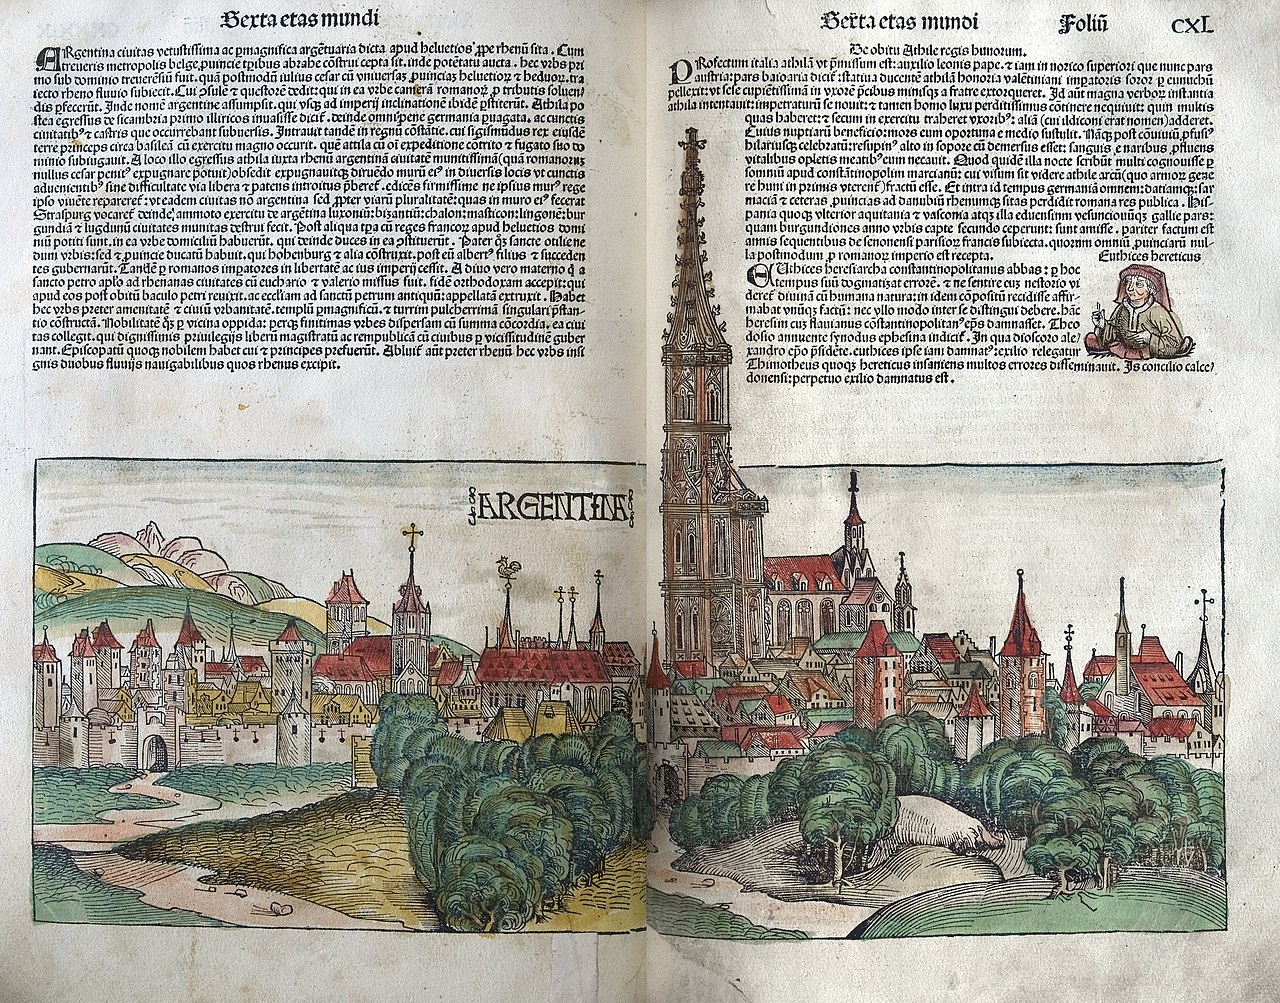 Sexta etas mundi
ARgentina ciuitas vetustissima ac p̱magnifica argẽtuaria dicta apud helvetios ꝓpe rhenũ sita. Cum
treueris metropolis belge ꝓuincie tp̃ibus abrahe cõstrui cepta sit. inde potẽtati aucta. hec vrbs pri
mo sub dominio treuerẽsiũ fuit. quã postmodũ iulius cesar cũ vniuersaꝫ ꝓuinciaꝫ heluetioꝝ ⁊ heduoꝝ. tra
iecto rheno fluuio subiecit. Cui ꝯsulẽ ⁊ questorẽ dedit: qui in ea vrbe camerã romanoꝝ ꝓ tributis soluen
dis ꝑfecerũt. Inde nomẽ argentine assumpsit. qui vsqꝫ ad imperij inclinationẽ ibidẽ ꝑstiterũt. Athila po
stea egressus de sicambria primo illiricos inuasisse dicit᷑. deinde omnẽ pene germania ꝑuagata. ac cunctis
ciuitatibꝰ ⁊ castris que occurrebant subuersis. Intrauit tandẽ in regnũ cõstãtie. cui sigismũdus rex eiusdẽ
terre princeps circa basileã cũ exercitu magno occurit. quẽ attila cũ oĩ expeditione cõtrito ⁊ fugato suo do
minio subiugauit. A loco illo egressus athila iuxta rhenũ argentinã ciuitatẽ munitissimã (quam romanorum
nullus cesar penitꝰ expugnare potuit) obsedit expugnauitqꝫ diruẽdo murũ eiꝰ in diuersis locis vt cunctis
aduenientibꝰ sine difficultate via libera ⁊ patens introitus p̃beret᷑. edicẽs firmissime ne ipsius murꝰ rege
ipso viuẽte repararet᷑: vt eadem ciuitas nõ argentina sed ꝓpter viarũ pluralitatẽ: quas in muro eiꝰ fecerat
Straspurg vocaret᷑ deindeʼ ammoto exercitu de argẽtina luxoniũ: bizantiũ: chalon: masticon: lingonẽ: bur
gundiã ⁊ lugdunũ ciuitates munitas destrui fecit. Post aliqua tꝑa cũ reges francoꝝ apud heluetios domi
niũ potiti sunt. in ea vrbe domiciliũ habuerũt. qui deinde duces in ea ꝯstituerũt. Pater qꝫ sancte otilie ne
dum vrbis: sed ⁊ ꝓuincie ducatũ habuit. qui hohenburg ⁊ alia cõstruxit. post eũ albertꝰ filius ⁊ succeden
tes gubernarũt. Tandẽ ꝑ romanos imꝑatores in libertatẽ ac ius imperij cessit. A diuo vero materno q̃ a
sancto petro apl̃o ad rhenanas ciuitates cũ euchario ⁊ valerio missus fuit. fidẽ orthodoxam accepit: qui
apud eos post obitũ baculo petri reuixit. ac eccl̃iam ad sanctũ petrum antiquũ: appellatã extruxit. Habet
hec vrbs preter amenitatẽ ⁊ ciuiũ vrbanitatẽ. templũ ꝑmagnificũ. ⁊ turrim pulcherrimã singulari p̃stan-
tio cõstructam. Nobilitatẽ qꝫ ꝑ vicina oppida: perqꝫ finitimas vrbes dispersam cũ summa cõcordia. ea ciui
tas collegit. qui dignissimis priuilegijs liberũ magistratũ ac rempublicã cũ ciuibus ꝑ vicissitudinẽ guber
nant. Episcopatũ quoqꝫ nobilem habet cui ⁊ principes prefuerũt. Abluit᷑ aũt preter rhenũ hec vrbs insi
gnis duobus fluuijs nauigabilibus quos rhenus excipit.
ARGENTINA
Sexta etas mundi
Foliũ
CXL
De obitu Athile regis hunorum.
PRofectum italia athilã vt p̃missum est: auxilio leonis pape. ⁊ iam in norico superiori que nunc pars
austria: pars baioaria dicit᷑: statiua ducentẽ athilã honoria valẽtiniani imꝑatoris soror ꝑ eunuchũ
pellexit: vt sese cupiẽtissimã in vxorẽ p̃cibus minisqꝫ a fratre extorqueret. Id aũt magna verboꝝ instantia
athila intentauit: impetraturũ se nouit: ⁊ tamen homo luxu perditissimus cõtinere nequiuit: quin multis
quas haberet: ⁊ secum in exercitu traheret vxoribꝰ: aliã (cui ildiconi erat nomen) adderet.
Cuius nuptiarũ beneficio: mors eum oportuna e medio sustulit. Nãqꝫ post cõuiuiũ ꝓfusꝰ
hilariusqꝫ celebratũ: resupinꝰ alto in sopore cũ demersus esset: sanguis e naribus ꝓfluens
vitalibus opletis meatibꝰ eum necauit. Quod quidẽ illa nocte scribũt multi cognouisse ꝑ
somniũ apud constantinopolim marcianũ: cui visum sit videre athile arcũ (quo armoꝝ gene
re huni in primis vterent᷑) fractũ esse. Et intra id tempus germaniã omnem: datiamqꝫ: sar
maciam ⁊ ceteras ꝓuincias ad danubiũ rhenumqꝫ sitas perdidit romana res publica. His-
pania quoqꝫ vlterior aquitania ⁊ vasconia atqꝫ illa eduensium vesunciouũqꝫ gallie pars:
quam burgundiones anno vrbis capte secundo ceperunt: sunt amisse. pariter factum est
annis sequentibus de senonensi parisioꝝ francis subiecta. quorum omniũ ꝓuinciarũ nul-
la postmodum ꝑ romanoꝝ imperio est recepta.
Euthices hereticus
EUthices heresiarcha constantinopolitanus abbas: ꝑ hoc
tempus suũ dogmatizat errorẽ. ⁊ ne sentire cuꝫ nestorio vi
deret᷑ diuinã cũ humana natura: in idem cõpositũ recidisse affir-
mabat vnũqꝫ factũ: nec vllo modo inter se distingui debere. hãc
heresim cuꝫ flauianus cõstantinopolitanꝰ ep̃s damnasset. Theo
dosio annuente synodus ephesina indicit᷑. In qua dioscoro ale/
xandro ep̃o p̃sidẽte. euthices ipse iam damnatꝰ: exilio relegatur
Thimotheus quoqꝫ hereticus insaniens multos errores disseminauit. Is concilio calce/
donensi: perpetuo exilio damnatus est.